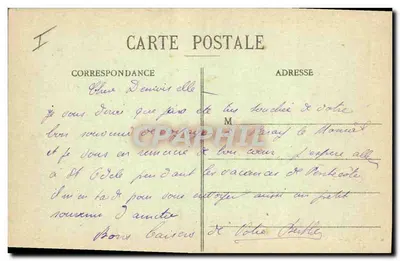 I
CARTE POSTALE
CORRESPONDANCE
ADRESSE
M
CPARAMA
Chère Demoiselle
je vous dirais que j'ai été bien touchée de votre
bon souvenir de Paray le Monial
et je vous en remercie de bon coeur j'espère aller
à St Odile pendant les vacances de Pentecôte
il m'en tarde pour vous envoyer aussi un petit
souvenir d'amitié
Bons baisers de Votre